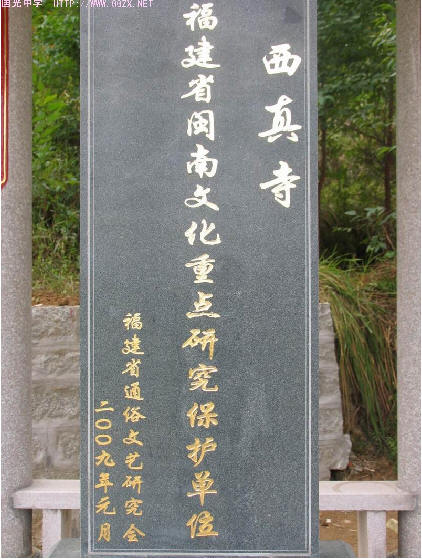 国光中学 HTTP://WWW.GGZX.NET
西真寺
福建省闽南文化重点研究保护单位
福建省通俗文艺研究会
二〇〇九年元月